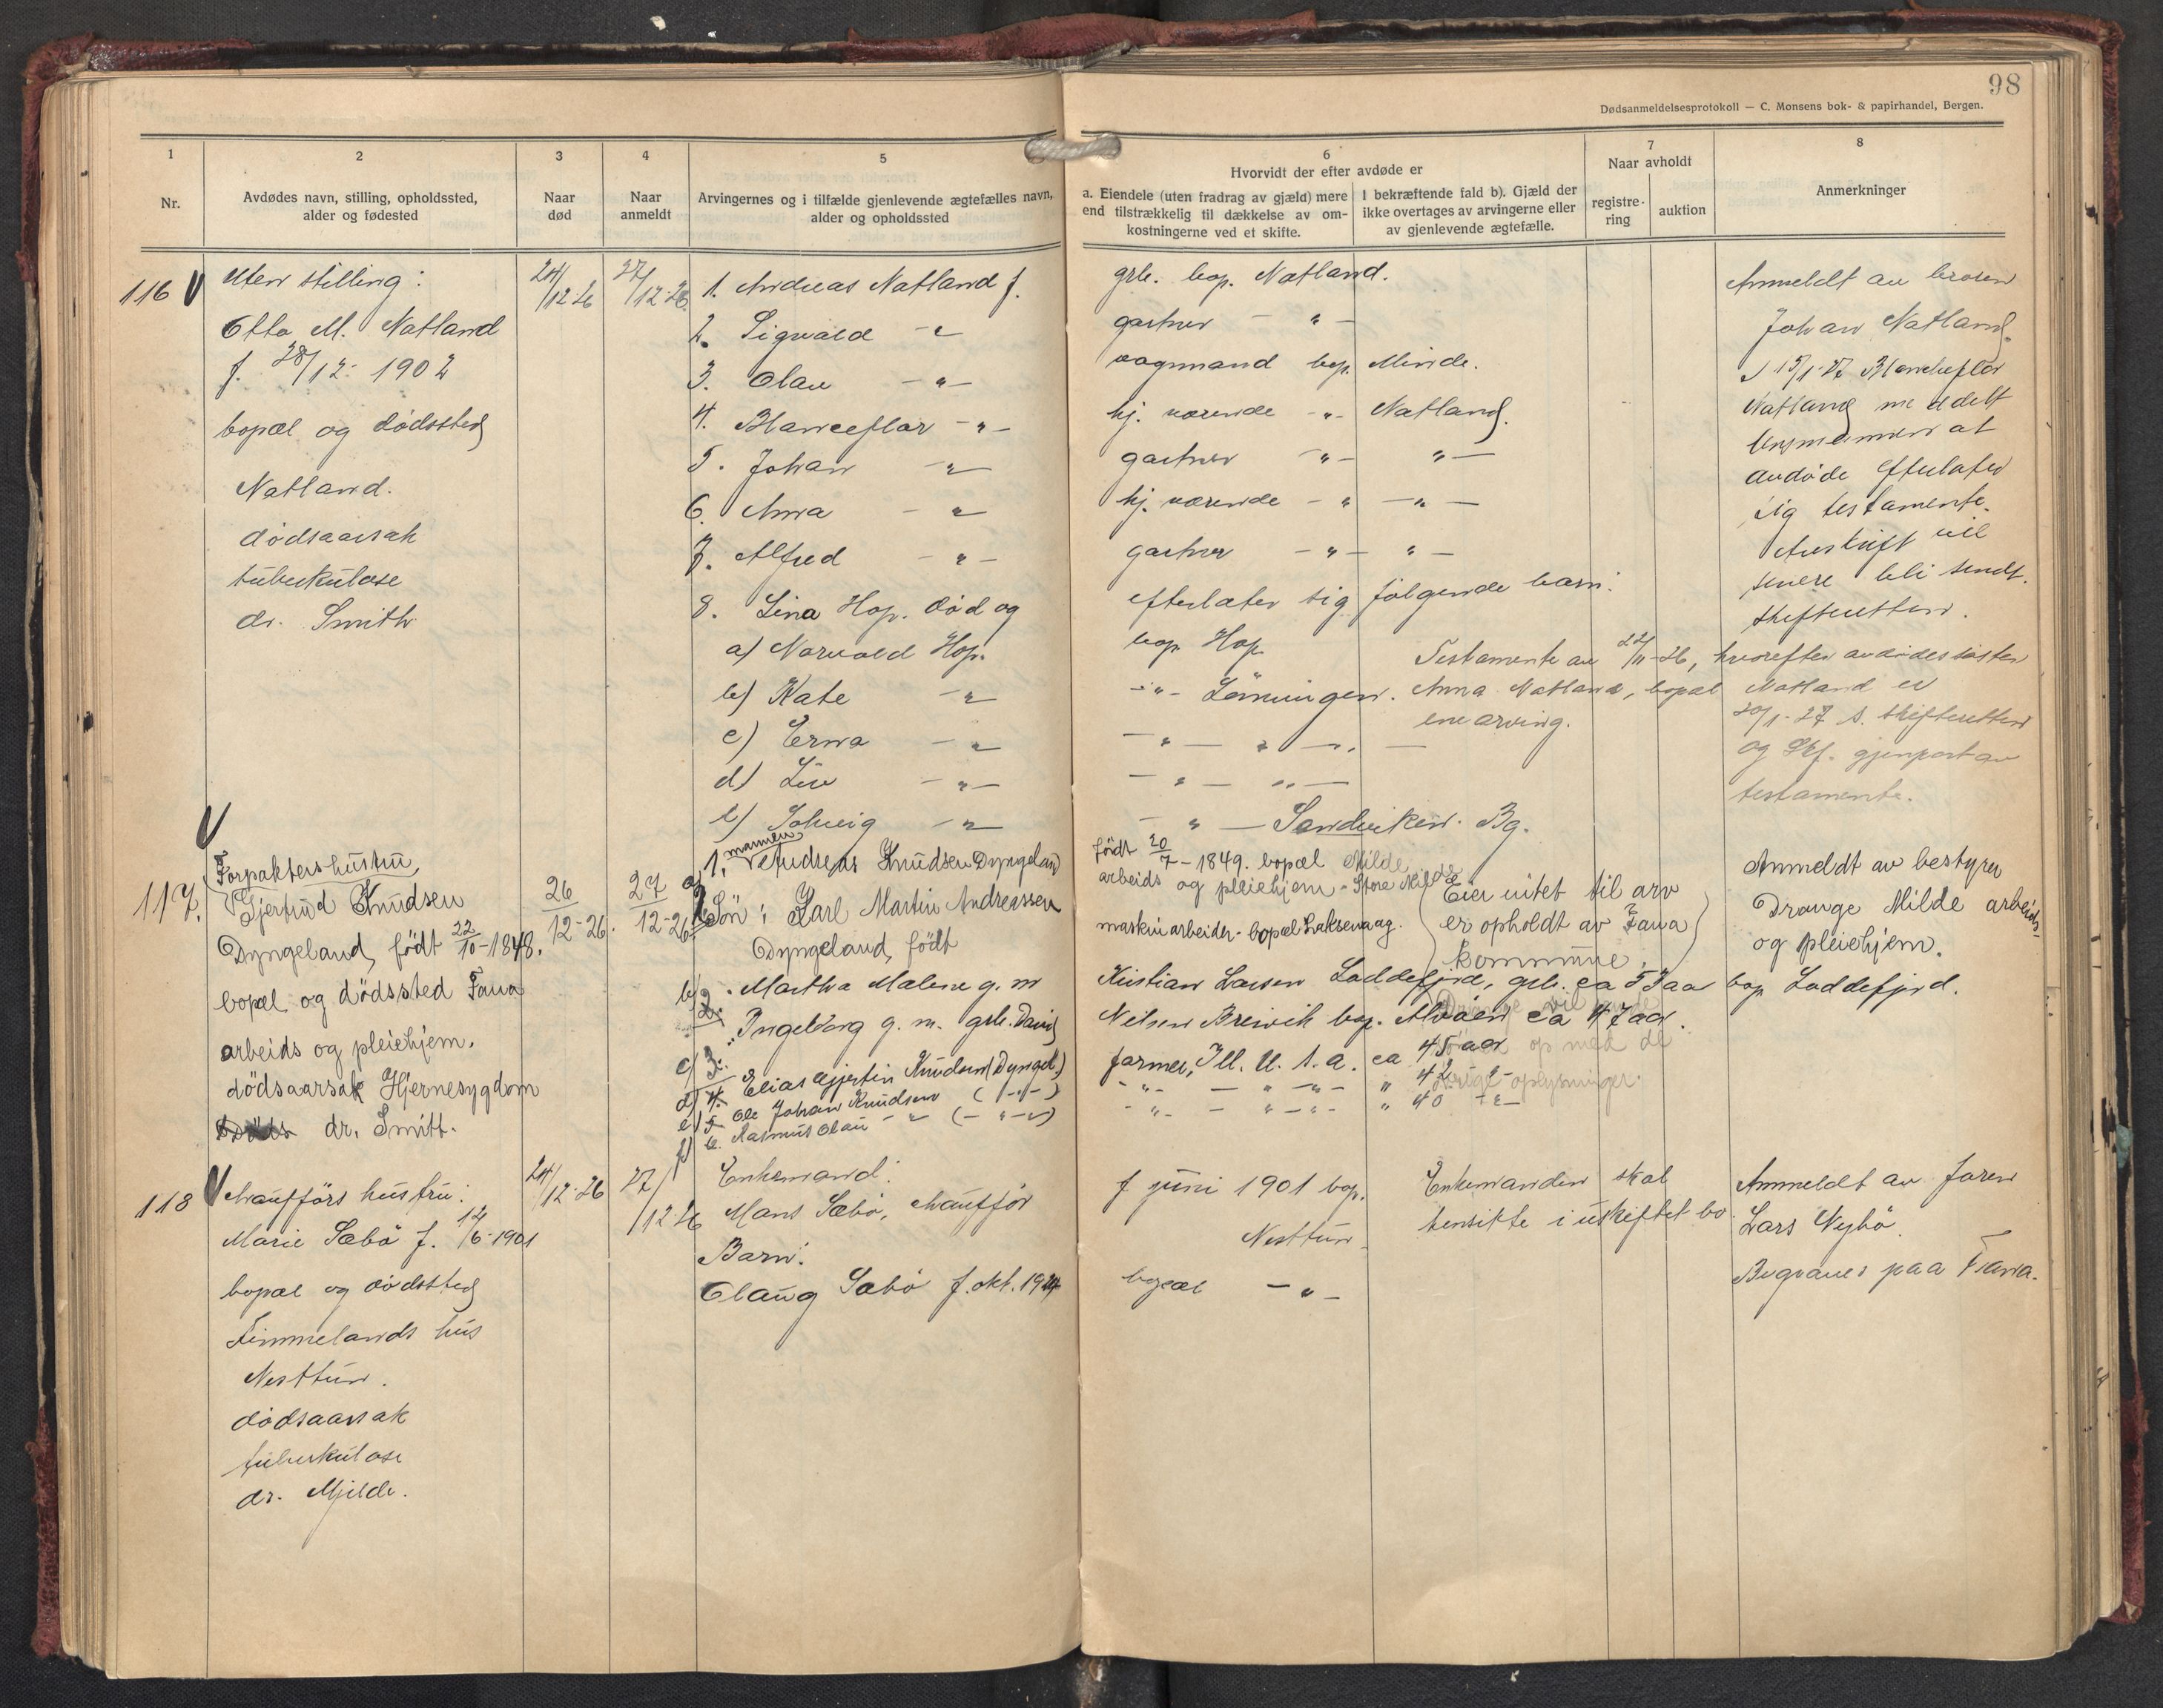 98
Dødsanmeldelsesprotokoll — C. Monsens bok- & papirhandel, Bergen.
1
Nr.
2
Avdødes navn, stilling, opholdssted,
alder og fødested
3
Naar
død
4
Naar
anmeldt
5
Arvingernes og i tilfælde gjenlevende ægtefælles navn,
alder og opholdssted
6
Hvorvidt der efter avdøde er
a. Eiendele (uten fradrag av gjæld) mere
end tilstrækkelig til dækkelse av om-
kostningerne ved et skifte.
I bekræftende fald b). Gjæld der
ikke overtages av arvingerne eller
av gjenlevende ægtefælle.
7
Naar avholdt
registre-
ring
auktion
8
Anmerkninger
116 V
Uten stilling:
Otto M. Natland
f. 28/12- 1902
bopæl og dødssted
Natland.
dødsaarsak
tuberkulose
dr. Smith
24/12-26
27/12-26
1. Andreas Natland f.
2. Sigvald -"-
3. Olav -"-
4. Blanceflor -"-
5. Johan -"-
6. Anna -"-
7. Alfred -"-
8. Lina Hop. død og
a) Norvald Hop.
b) Kate -"-
c) Erna -"-
d) Liv -"-
e) Solveig -"-
grb. bop. Natland.
gartner - " -
vognmand bop. Minde.
hj. værende -"- Natland.
gartner -"- "-
hj. værende -"- -"-
gartner -"- "-
efterlater sig følgende barn:
bop. Hop.
-"- Lønningen.
-"- " -"-
-"- "-
-"- Sandviken. Bg.
Testamente av 22/11-26, hvorefter avdødes søster
Anna Natland, bopæl Natland er
enearving.
Anmeldt av broren
Johan Natland.
D 15/1-27 Blancheflor
Natland meddelt
lensmannen at
avdøde efterlater
sig testamente.
Avskrift vil
senere bli sendt
skifteretten.
20/1-27 s. skifteretten
og Skf. gjenpart av
testamente.
V
117.
Forpakters hustru
Gjertrud Knudsen
Dyngeland, født 22/10-1848.
bopæl og dödssted Fana
arbeids og pleiehjem.
dödsaarsak Hjernesygdom
dr. Smitt.
26/12-26.
27/12-26
mannen
1. Andreas Knudsen Dyngeland
a) Sön: Karl Martin Andreassen
Dyngeland, født
b) 2. Martha Malene g. m
Ingeborg g. m. grb. David
c) 3.
d) 4. Elias Gjertin Knudsen (Dyngel.)
e) 5. Ole Johan Knudsen (-"-)
f) 6. Rasmus Olai -"- (-"-)
født 20/7-1849. bopæl Milde
arbeids og pleiehjem - Store Milde
maskinarbeider - bopæl Laksevaag.
Eier intet til arv
er opholdt av Fana
kommune.
Kristian Larsen Loddefjord, grb. ca 53 aar bop Loddefjord.
Nilsen Breivik bop. Alvøen ca 47 aar.
farmer, Ill. U. S. a. ca 45 aar
-"- - " -"- " 42 -"-
-"- - " -"- " 40 -"-
op med de
øvrige oplysninger.
Anmeldt av bestyrer
Drange Milde arbeids-
og pleiehjem.
118 V
Chaufførs hustru:
Marie Sæbø f. 12/6-1901
bopæl og dødssted
Timmelands hus
Nesttun.
dødsaarsak
tuberkulose
dr. Mjelde.
24/12-26
27/12-26
Enkemand:
Mons Sæbø, chauffør
Barn:
Olaug Sæbø f. okt. 1924
f juni 1901 bop.
Nesttun
bopæl -"-
Enkemanden skal
hensitte i uskiftet bo.
Anmeldt av faren
Lars Nybø.
Begraves paa Fana.